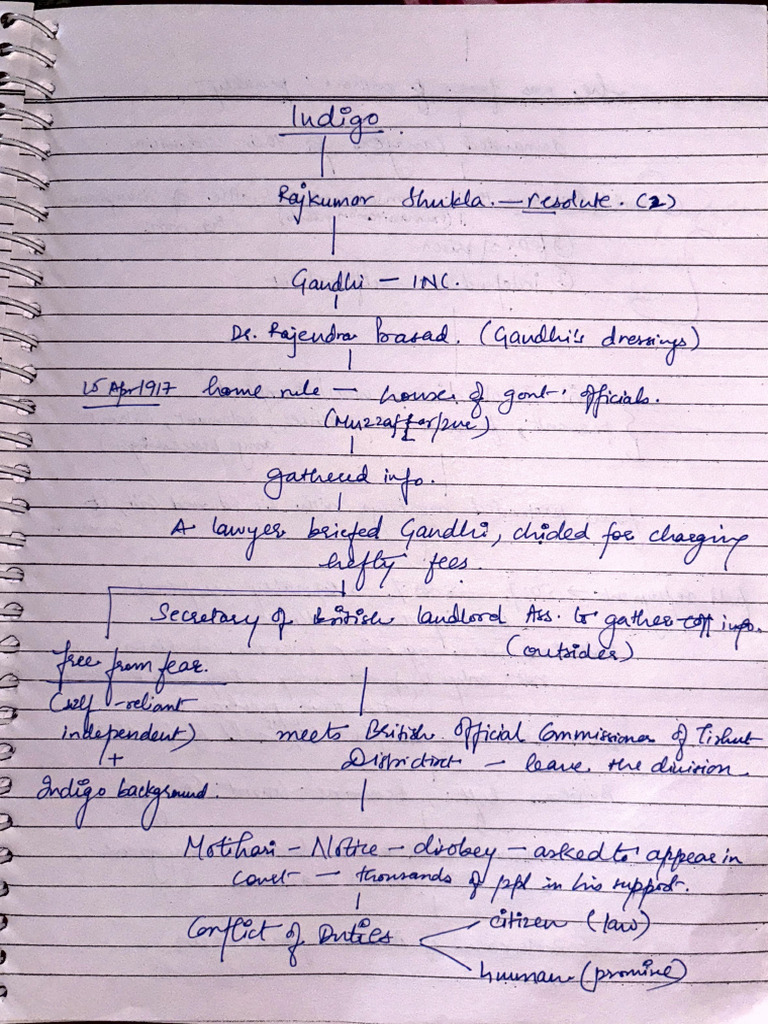 Indigo
Rajkumar Shukla. — resolute. (2)
Gandhi — INC.
Dr. Rajendra Prasad. (Gandhi's dressings)
15 Apr 1917 home rule — house of govt. officials.
(Muzzafarpur)
gathered info.
A lawyer briefed Gandhi, chided for charging
hefty fees.
Secretary of British landlord Ass. to gather info.
(outsider)
free from fear.
(self-reliant
independent)
+
Indigo background.
meets British Official Commissioner of Tirhut
Districtirct — leave the division.
Motihari — Notice — disobey — asked to appear in
court — thousands of ppl in his support.
Conflict of Duties
citizen (law)
human (promise)